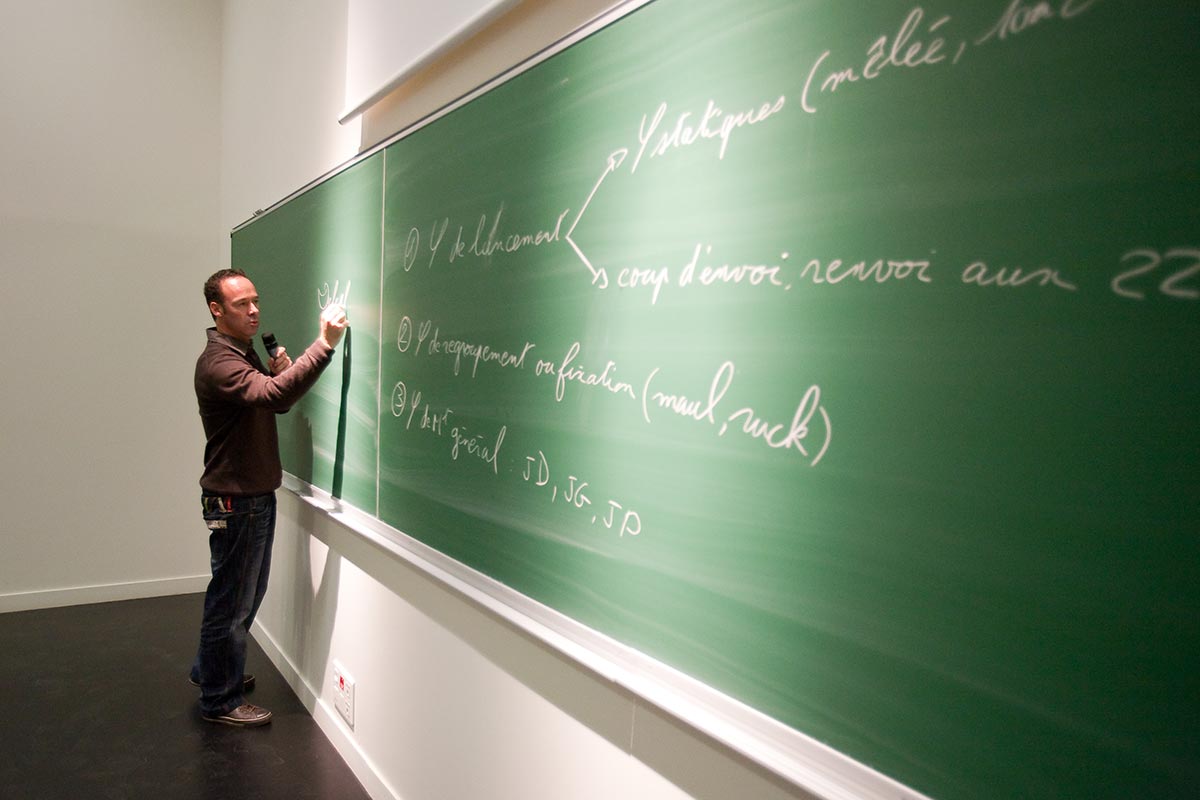 ① φ de lancement
φ statiques (mêlée,
coup d'envoi, renvoi aux 22
② φ de regroupement ou fixation (maul, ruck)
③ φ de Mt général : JD, JG, JP